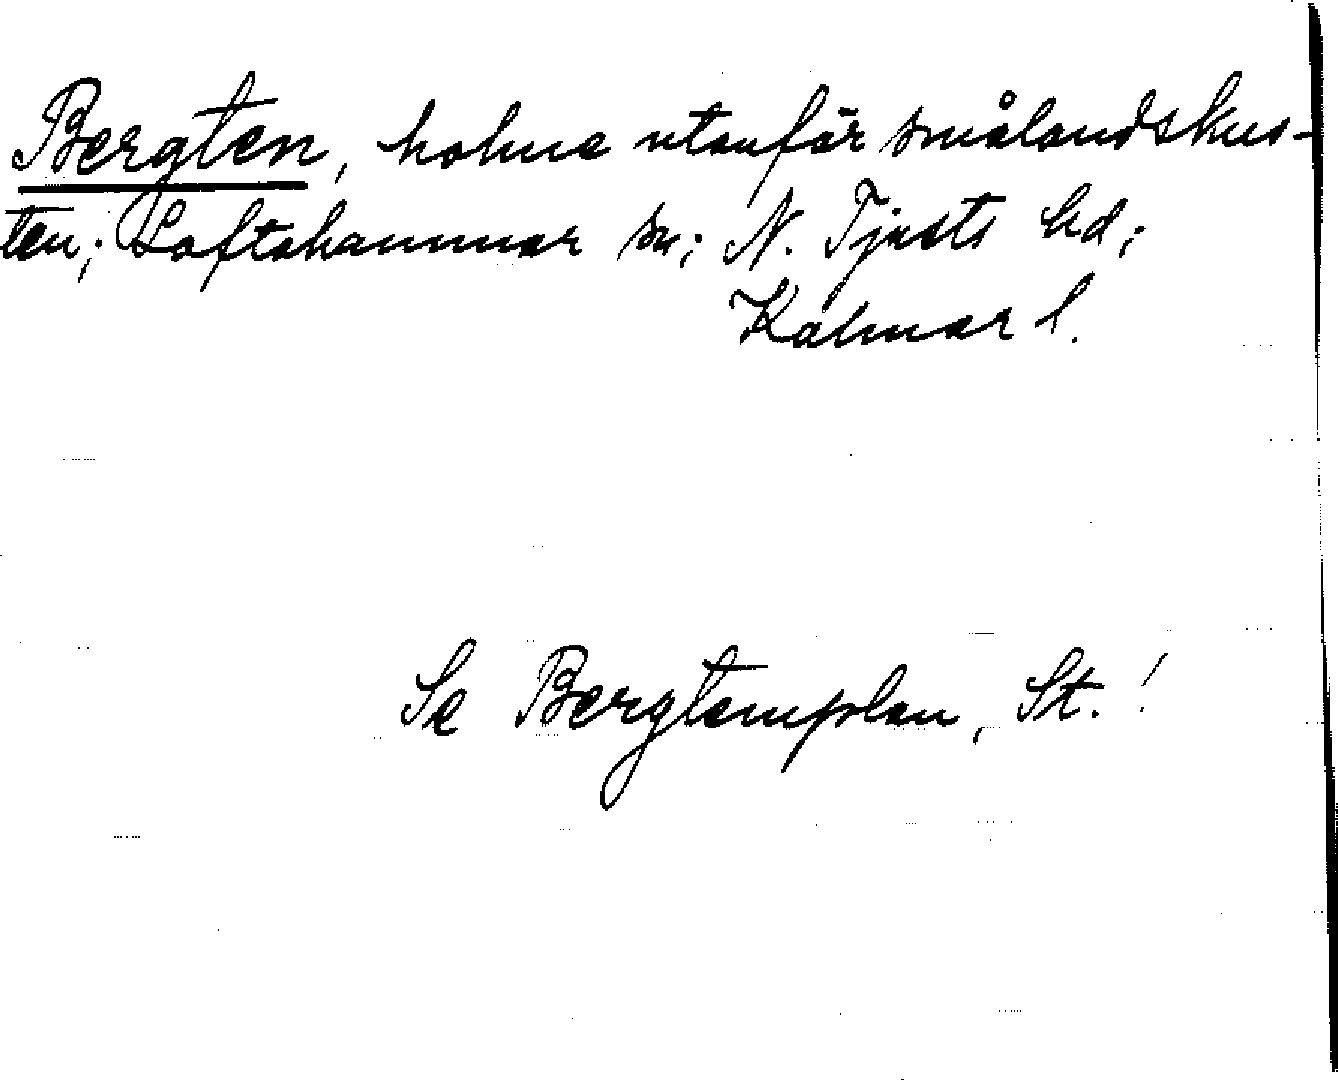 Bergten, holme utanför smålandskus-
ten; Loftahammar sn; N. Tjusts hd;
Kalmar l.
Se Bergtemplan, St.!